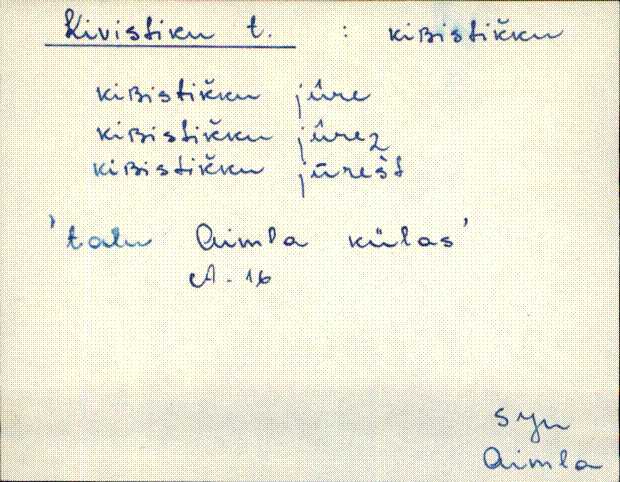 Kivistiku t. : kiʙistik̆ku
kiʙistik̆ku jûre
kiʙistik̆ku jûrez
kiʙistik̆ku jūrešt
'talu Aimla külas'
A. 16
Syn
Aimla